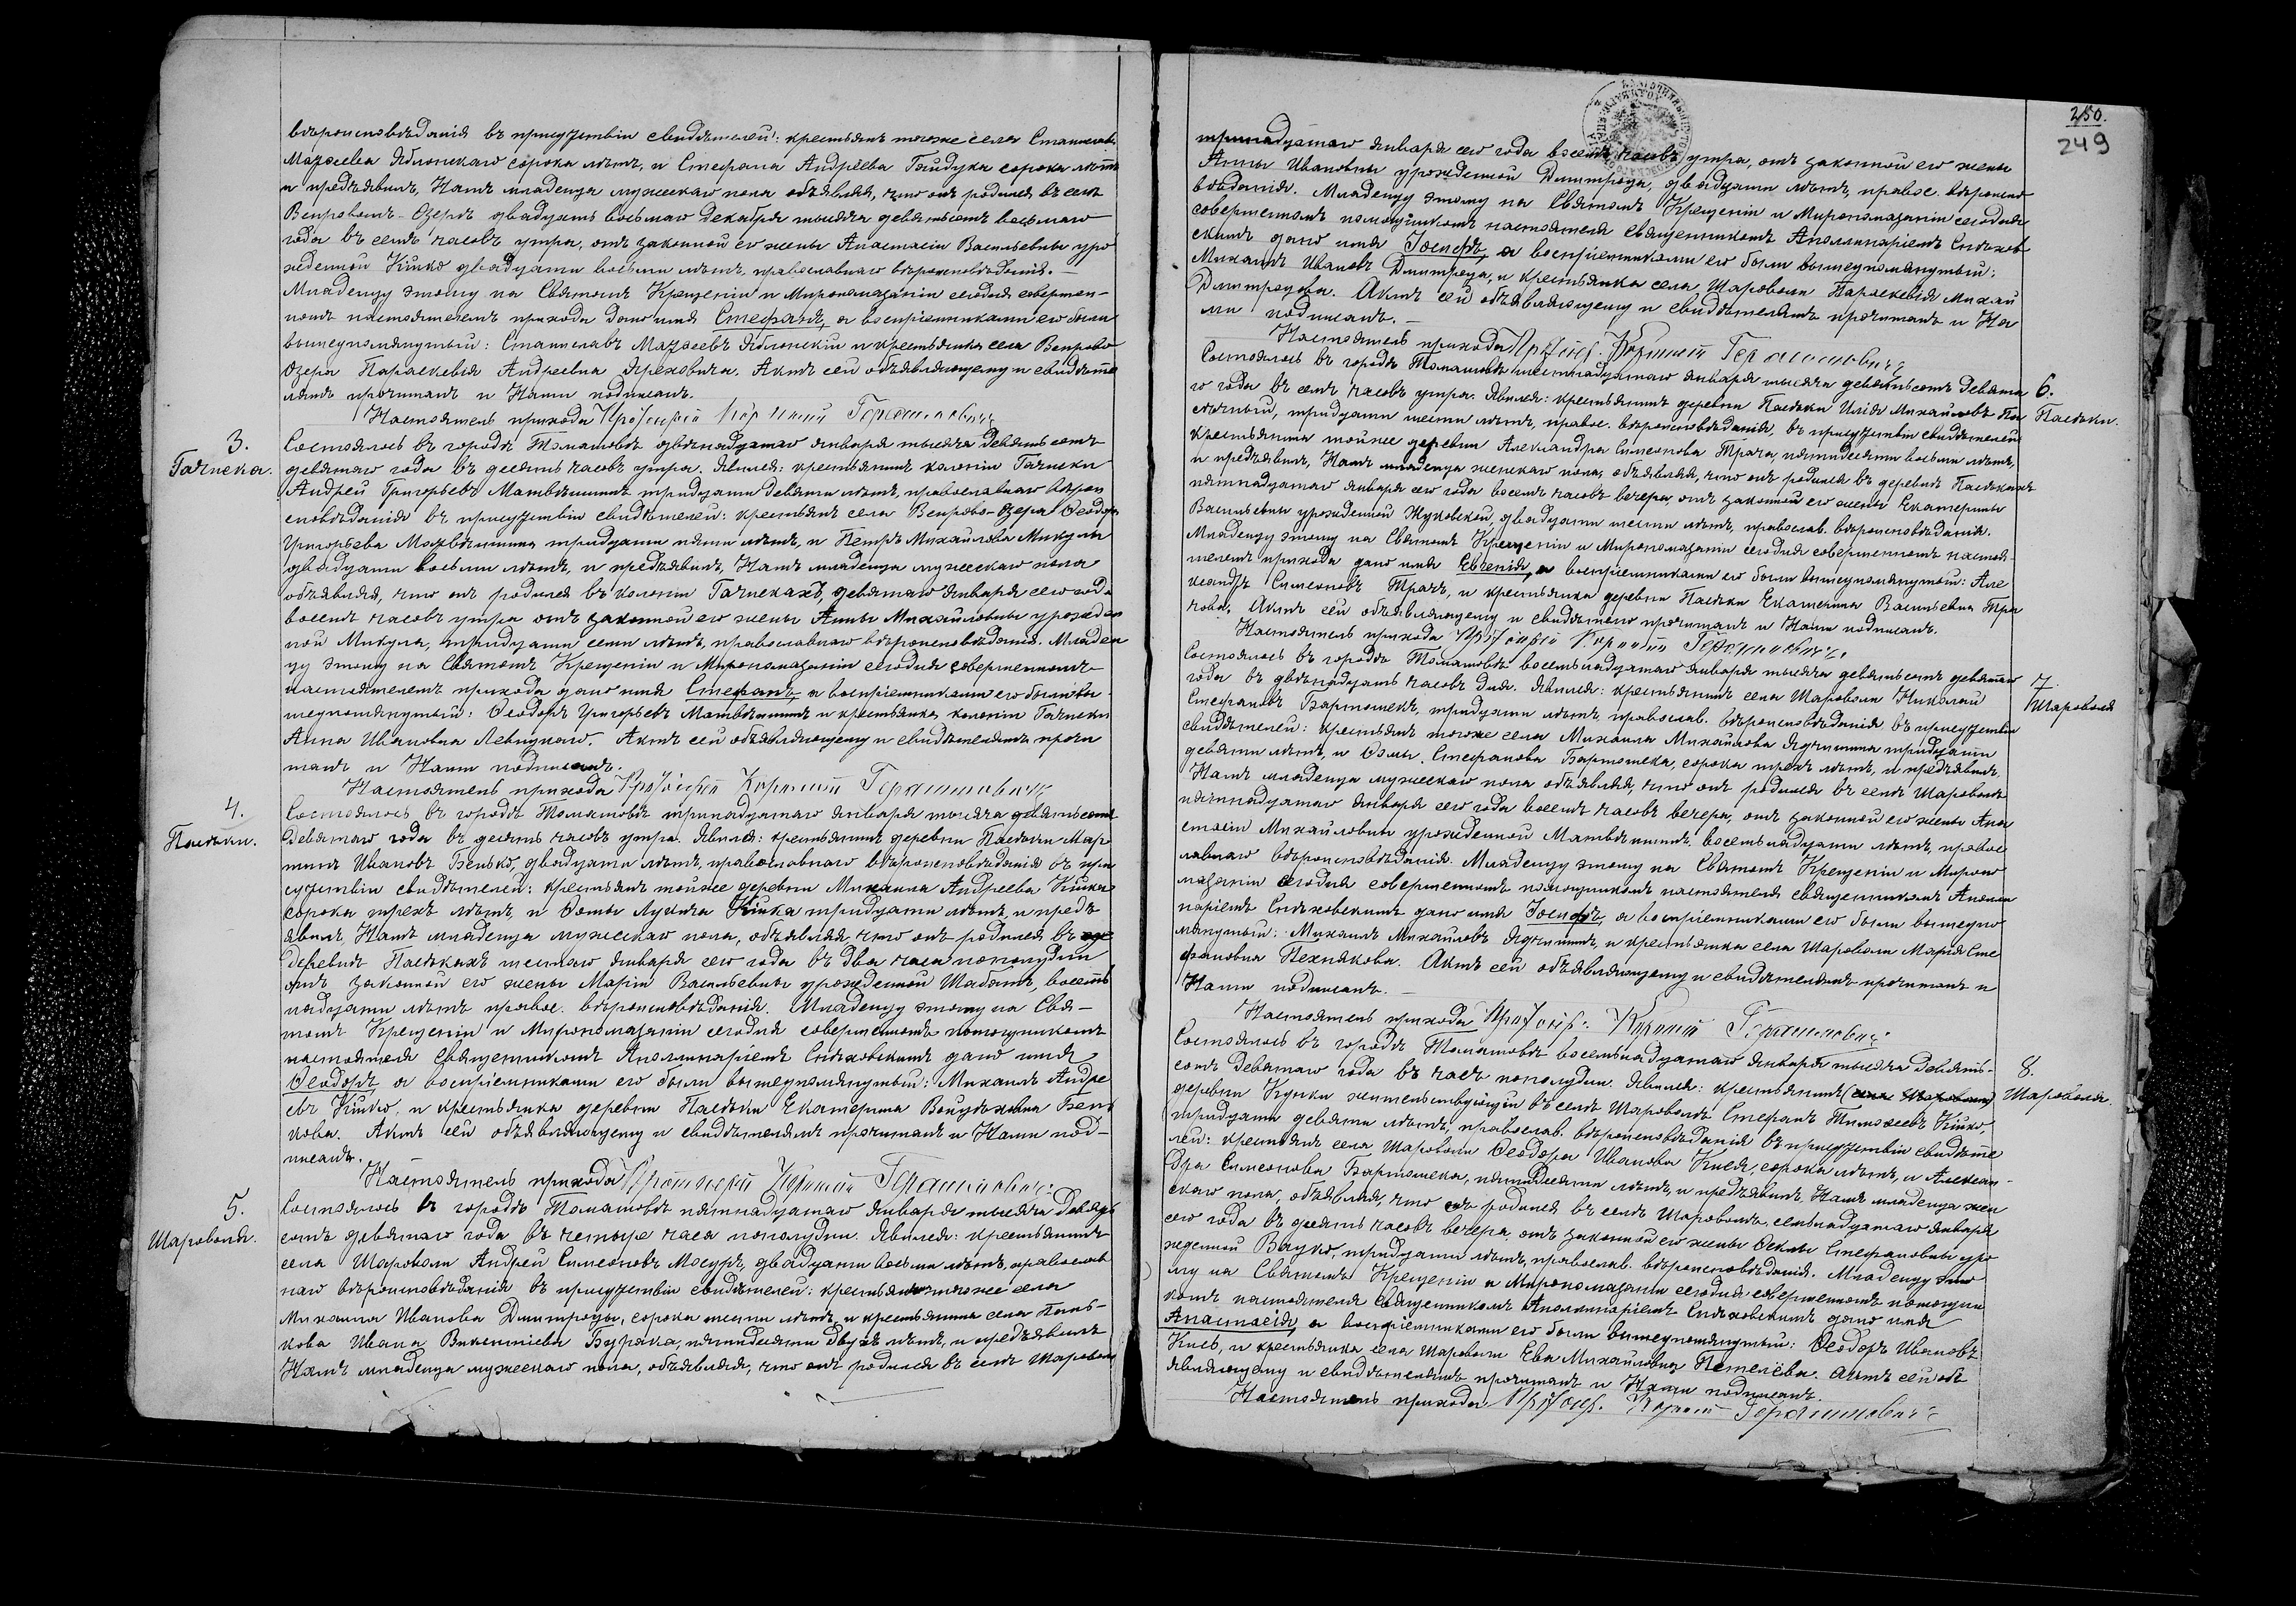 вѣроисповѣданія въ присутствіи свидѣтелей: крестьянъ тогоже села Станислава
Маѳеева Яблонскаго сорока лѣтъ, и Стефана Андреева Гайдука сорока лѣтъ
и предъявилъ, Намъ младенца мужескаго пола объявляя, что онъ родился въ селѣ
Вепровомъ-Озерѣ двадцать восьмаго Декабря тысяча девятьсотъ восьмаго
года въ семь часовъ утра, отъ законной его жены Анастасіи Васильевны уро
жденной Кицко двадцати восьми лѣтъ, православнаго вѣроисповѣданія.—
Младенцу этому на Святомъ Крещеніи и Мѵропомазаніи сегодня совершен-
номъ настоятелемъ прихода дано имя Стефанъ, а воспріемниками его были
вышеупомянутый: Станиславъ Маѳеевъ Яблонскій и крестьянка села Вепрово
Озера Параскевія Андреевна Ореховича. Актъ сей объявляющему и свидѣте
лямъ прочитанъ и Нами подписанъ.
Настоятель прихода Протоіерей Корнилій Герштанович
3.
Гачиска.
Состоялось въ городѣ Томашовѣ двѣнадцатаго января тысяча девятьсотъ
девятаго года въ десять часовъ утра. Явился: крестьянинъ колоніи Гачиски
Андрей Григорьевъ Матвѣишинъ тридцати девяти лѣтъ, православнаго вѣрои
сповѣданія въ присутствіи свидѣтелей: крестьянъ села Вепрово-Озера Ѳеодора
Григорьева Матвѣишина тридцати пяти лѣтъ, и Петръ Михайлова Микулы
двадцати восьми лѣтъ, и предъявилъ, Намъ младенца мужескаго пола
объявляя, что онъ родился въ колоніи Гачискахъ, девятаго января сего года
восемь часовъ утра отъ законной его жены Анны Михайловны урожден
ной Микула, тридцати семи лѣтъ, православнаго вѣроисповѣданія. Младен
цу этому на Святомъ Крещеніи и Мѵропомазаніи сегодня совершенномъ
настоятелемъ прихода дано имя Стефанъ, а воспріемниками его были вы
шеупомянутый: Ѳеодоръ Григорьевъ Матвѣишинъ и крестьянка колоніи Гачиски
Анна Ивановна Левицкаго. Актъ сей объявляющему и свидѣтелямъ прочи
танъ и Нами подписанъ.
Настоятель прихода Протоіерей Корнилій Герштанович
4.
Пасѣки.
Состоялось въ городѣ Томашовѣ тринадцатаго января тысяча девятьсотъ
девятаго года въ десять часовъ утра. Явился: крестьянинъ деревни Пасѣки Мар
тинъ Ивановъ Бенько, двадцати лѣтъ, православнаго вѣроисповѣданія въ при
сутствіи свидѣтелей: крестьянъ тойже деревни Михаила Андреева Кицка
сорока трехъ лѣтъ, и Ѳомы Лукича Кицка тридцати лѣтъ, и предъ
явилъ, Намъ младенца мужескаго пола, объявляя что онъ родился въ
деревнѣ Пасѣкахъ шестаго января сего года въ два часа пополудни
отъ законной его жены Маріи Васильевны урожденной Шабатъ, восемь
надцати лѣтъ правос. вѣроисповѣданія. Младенцу этому на Свя-
томъ Крещеніи и Мѵропомазаніи сегодня совершенномъ помощникомъ
настоятеля священникомъ Аполлинаріемъ Сиѣховскимъ дано имя
Ѳеодоръ, а воспріемниками его были вышеупомянутый: Михаилъ Андре
евъ Кицко, и крестьянка деревни Пасѣки Екатерина Войцѣховна Бень
кова. Актъ сей объявляющему и свидѣтелямъ прочитанъ и Нами под-
писанъ.
Настоятель прихода Протоіерей Корнилій Герштанович
5.
Шароволя.
Состоялось въ городѣ Томашовѣ пятнадцатаго января тысяча девять
сотъ девятаго года въ четыре часа пополудни. Явился: крестьянинъ
села Шароволи Андрей Симеоновъ Мосуръ, двадцати восьми лѣтъ, православ
наго вѣроисповѣданія въ присутствіи свидѣтелей: крестьянъ тогоже села
Михаила Иванова Дмитроцы, сорока шести лѣтъ, и крестьянина села Пань-
кова Ивана Викентіева Бурака, пятидесяти двухъ лѣтъ, и предъявилъ
Намъ младенца мужескаго пола, объявляя, что онъ родился въ селѣ Шароволѣ
250.
249
тринадцатаго января сего года восемь часовъ утра, отъ законной его жены
Анны Ивановны урожденной Дмитроца, двадцати лѣтъ, правос. вѣроиспо
вѣданія. Младенцу этому на Святомъ Крещеніи и Мѵропомазаніи сегодня
совершенномъ помощникомъ настоятеля священникомъ Аполлинаріемъ Сиѣхов
скимъ дано имя Іосифъ, а воспріемниками его были вышеупомянутый:
Михаилъ Ивановъ Дмитроца, и крестьянка села Шароволи Параскевія Михай
Дмитроцова. Актъ сей объявляющему и свидѣтелямъ прочитанъ и На
ми подписанъ.—
Настоятель прихода Протоіер. Корнилій Герштанович
6.
Пасѣки.
Состоялось въ городѣ Томашовѣ шестнадцатаго января тысяча девятьсотъ девята
го года въ семь часовъ утра. Явился: крестьянинъ деревни Пасѣки Илія Михайловъ Па
сѣчный, тридцати шести лѣтъ, правос. вѣроисповѣданія, въ присутствіи свидѣтелей
крестьянина тойже деревни Александра Симеонова Трача, пятидесяти восьми лѣтъ,
и предъявилъ, Намъ младенца женскаго пола, объявляя, что онъ родился въ деревнѣ Пасѣкахъ
пятнадцатаго января сего года восемь часовъ вечера, отъ законной его жены Екатерины
Васильевны урожденной Жуковской, двадцати шести лѣтъ, православ. вѣроисповѣданія.
Младенцу этому на Святомъ Крещеніи и Мѵропомазаніи сегодня совершенномъ настоя-
телемъ прихода дано имя Евгенія, а воспріемниками его были вышеупомянутый: Але
ксандръ Симеоновъ Трачъ, и крестьянка деревни Пасѣки Екатерина Васильевна Тра
чова, Актъ сей объявляющему и свидѣтелю прочитанъ и Нами подписанъ.
Настоятель прихода Протоіерей Корнилій Герштанович
7.
Шароволя
Состоялось въ городѣ Томашовѣ восемьнадцатаго января тысяча девятьсотъ девятаго
года въ двѣнадцать часовъ дня. Явился: крестьянинъ села Шароволи Николай
Стефановъ Бартошекъ, тридцати лѣтъ, православ. вѣроисповѣданія въ присутствіи
свидѣтелей: крестьянъ тогоже села Михаила Михайлова Ядчишина тридцати
девяти лѣтъ, и Ѳомы Стефанова Бартошека, сорока трехъ лѣтъ, и предъявилъ,
Намъ младенца мужескаго пола объявляя, что онъ родился въ селѣ Шароволѣ
пятнадцатаго января сего года восемь часовъ вечера, отъ законной его жены Ана
стасіи Михайловны урожденной Матвѣишинъ, восемьнадцати лѣтъ, правос
лавнаго вѣроисповѣданія. Младенцу этому на Святомъ Крещеніи и Мѵропо
мазаніи сегодня совершенномъ помощникомъ настоятеля священникомъ Аполли
наріемъ Сиѣховскимъ дано имя Іосифъ, а воспріемниками его были вышеупо
мянутый: Михаилъ Михайловъ Ядчишинъ, и крестьянка села Шароволи Марія Сте
фановна Пехнякова. Актъ сей объявляющему и свидѣтелямъ прочитанъ и
Нами подписанъ.—
Настоятель прихода Протоіер. Корнилій Герштанович
8.
Шароволя.
Состоялось въ городѣ Томашовѣ восемьнадцатаго января тысяча девять-
сотъ девятаго года въ часъ пополудни. Явился: крестьянинъ (села Шароволи)
деревни Кунки жительствующій въ селѣ Шароволѣ Стефанъ Тимоѳеевъ Кицко,
тридцати девяти лѣтъ, православ. вѣроисповѣданія въ присутствіи свидѣте
лей: крестьянъ села Шароволи Ѳеодора Иванова Кися, сорока лѣтъ, и Алексан-
дра Симеонова Бартошека, пятидесяти лѣтъ, и предъявилъ, Намъ младенца жен
скаго пола, объявляя, что онъ родился въ селѣ Шароволѣ, семьнадцатаго января
сего года въ девять часовъ вечера, отъ законной его жены Ѳеклы Стефановны уро
жденной Вацко, тридцати лѣтъ, православ. вѣроисповѣданія. Младенцу это
му на Святомъ Крещеніи и Мѵропомазаніи сегодня совершенномъ помощни
комъ настоятеля священникомъ Аполлинаріемъ Сиѣховскимъ дано имя
Анастасія, а воспріемниками его были вышеупомянутый: Ѳеодоръ Ивановъ
Кись, и крестьянка села Шароволи Ева Михайловна Петелева. Актъ сей объ
являющему и свидѣтелямъ прочитанъ и Нами подписанъ.
Настоятель прихода Протоіер. Корнилій Герштанович